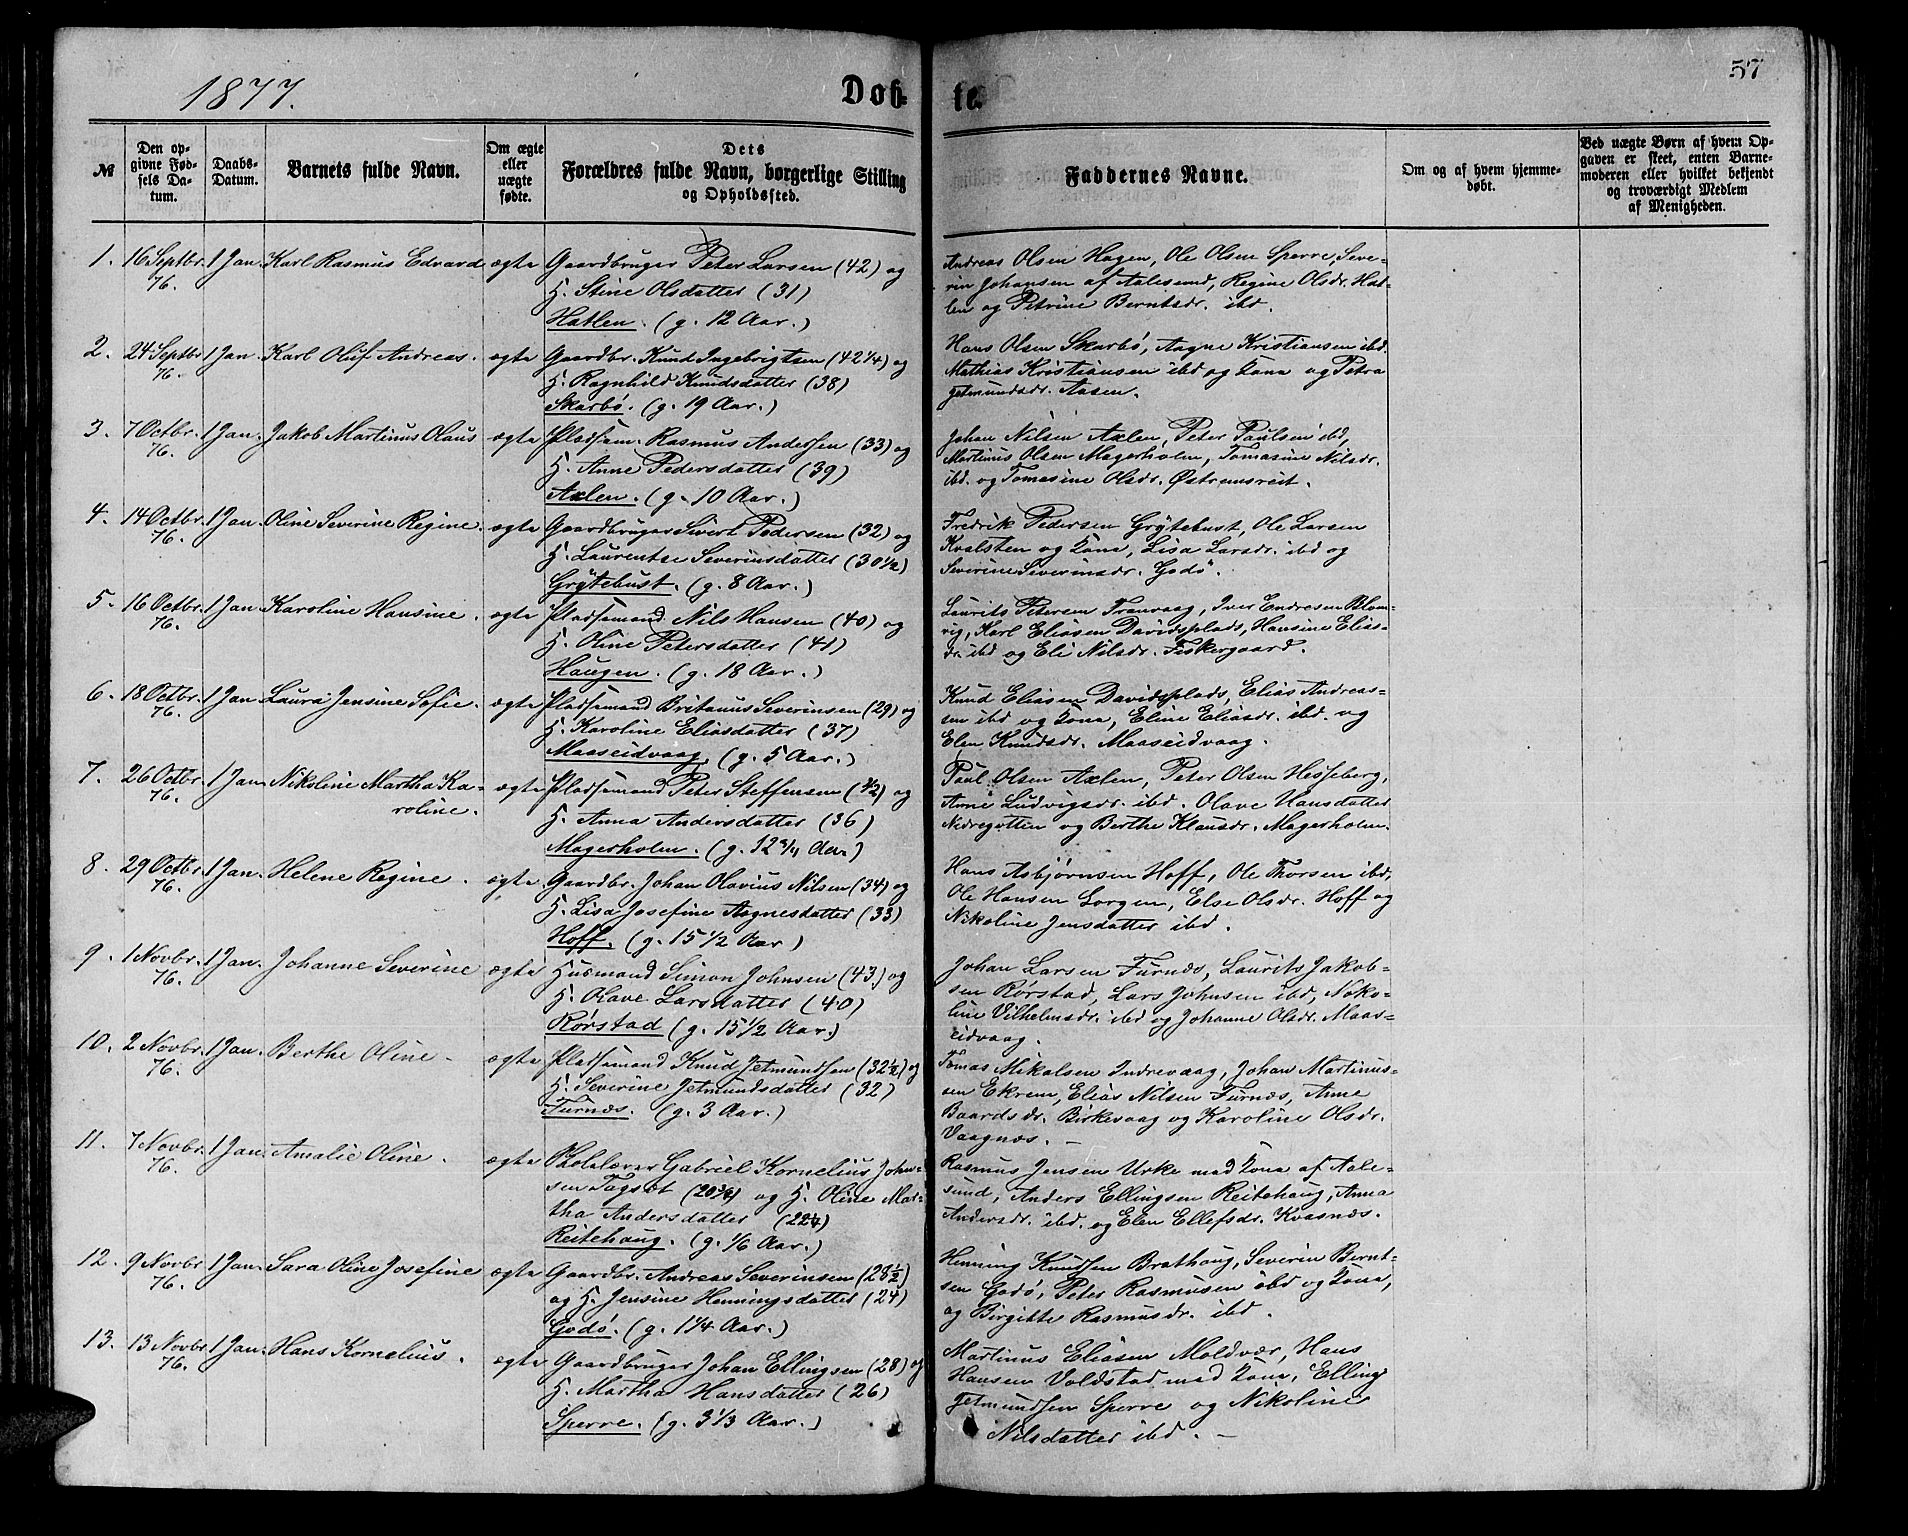 1877.
Døb-
te.
57
№
Den op-
givne Fød-
sels Da-
tum.
Daabs-
Datum.
Barnets fulde Navn.
Om ægte
eller
uægte
fødte.
Dets
Forældres fulde Navn, borgerlige Stilling
og Opholdssted.
Faddernes Navne.
Om og af hvem hjemme-
døbt.
Ved uægte Børn af hvem Op-
gaven er skeet, enten Barne-
moderen eller hvilket bekjendt
og troværdigt Medlem
af Menigheden.
1. 16 Septbr. 1 Jan. Karl Rasmus Edvard ægte Gaardbruger Peter Larsen (42) og
76.
H. Stine Olsdatter (31)
Hatlen. (g. 12 Aar.)
Andreas Olsen Hagen, Ole Olsen Sperre, Seve-
rin Johansen af Aalesund, Regine Olsdr. Hat-
len og Petrine Berntsdr. ibd.
2. 24 Septbr 1 Jan Karl Oluf Andreas. ægte Gaardbr. Knud Ingebrigtsen (42 1/4) og
76.
H. Ragnhild Knudsdatter (38)
Skarbø. (g. 19 Aar.)
Hans Olsen Skarbø, Aagne Kristiansen ibd.
Mathias Kristiansen ibd og Kona og Petra
Jetmundsdr. Aasen.
3. 7 Octbr. 1 Jan. Jakob Martinus Olaus ægte Pladsm. Rasmus Andersen (33) og
76.
H. Anne Pedersdatter (39)
Axlen. (g. 10 Aar.)
Johan Nilsen Axlen, Peter Paulsen ibd,
Martinus Olsen Magerholm, Tomasine Nilsdr.
ibd. og Tomasine Olsdr. Østremsreit.
4. 14 Octbr. 1 Jan. Oline Severine Regine. ægte Gaardbruger Sivert Pedersen (32) og
76.
H. Laurentse Severinsdatter (30 1/2)
Grytebust. (g. 8 Aar.)
Fredrik Pedersen Grytebust, Ole Larsen
Kvalsten og Kona, Lisa Larsdr. ibd og
Severine Severinsdr. Godø.
5. 16 Octbr. 1 Jan Karoline Hansine. ægte Pladsemand Nils Hansen (40) og
76.
H. Oline Petersdatter (41)
Haugen. (g. 18 Aar.)
Laurits Petersen Tranvaag, Iver Endresen Blom-
vig, Karl Eliasen Davidsplads, Hansine Elias-
dr. ibd og Eli Nilsdr. Fiskergaard.
6. 18 Octbr. 1 Jan Laura Jensine Sofie. ægte Pladsemand Britanus Severinsen (29) og
76.
H. Karoline Eliasdatter (37)
Maaseidvaag (g. 5 Aar.)
Knud Eliasen Davidsplads, Elias Andreas-
sen ibd og Kona, Eline Eliasdr. ibd. og
Elen Knudsdr. Maaseidvaag.
7. 26 Octbr. 1 Jan. Nikoline Martha Ka- ægte Pladsemand Peter Steffensen (42) og
76.
roline.
H. Anna Andersdatter (36)
Magerholm. (g. 12 3/4 Aar.)
Paul Olsen Axlen, Peter Olsen Hesseberg,
Anne Ludvigsdr. ibd. Olave Hansdatter
Nedregotten og Berthe Klausdr. Magerholm.
8. 29 Octbr. 1 Jan. Helene Regine. ægte Gaardbr. Johan Olavius Nilsen (34) og
76.
H. Lisa Josefine Aagnesdatter (33)
Hoff. (g. 15 1/2 Aar)
Hans Asbjørnsen Hoff, Ole Thorsen ibd,
Ole Hansen Lorgen, Else Olsdr. Hoff og
Nikoline Jensdatter ibd.
9. 1 Novbr. 1 Jan. Johanne Severine ægte Husmand Simon Johnsen (43) og
76.
H. Olave Larsdatter (40)
Rørstad (g. 15 1/2 Aar.)
Johan Larsen Furnæs, Laurits Jakob-
sen Rørstad, Lars Johnsen ibd, Niko-
line Vilhelmsdr. ibd og Johanne Olsdr. Maas-
eidvaag.
10. 2 Novbr. 1 Jan. Berthe Oline. ægte Pladsemand Knud Jetmundsen (32 1/2) og
76.
H. Severine Jetmundsdatter (32)
Furnæs. (g. 3 Aar.)
Tomas Mikalsen Indrevaag, Johan Martinus-
sen Ekrem, Elias Nilsen Furnæs, Anne
Baardsdr. Birkevaag og Karoline Olsdr.
Vaagnæs.
11. 7 Novbr. 1 Jan. Amalie Oline. ægte Skolelærer Gabriel Kornelius John-
76.
sen Tagset (20 3/4) og H. Oline Mar-
tha Andersdatter (22 1/4)
Reitehaug. (g. 1/6 Aar.)
Rasmus Jensen Urke med Kona af Aale-
sund, Anders Ellingsen Reitehaug, Anna
Andersdr. ibd. og Elen Ellefsdr. Kvasnæs.
12. 9 Novbr 1 Jan. Sara Oline Josefine ægte Gaardbr. Andreas Severinsen (28 1/2)
76.
og H. Jensine Henningsdatter (24)
Godø. (g. 1 1/4 Aar.)
Henning Knudsen Brathaug, Severin Bernt-
sen Godø, Peter Rasmusen ibd og Kona,
og Birgitte Rasmusdr. ibd.
13. 13 Novbr 1 Jan. Hans Kornelius. ægte Gaardbruger Johan Ellingsen (28) og
76.
H. Martha Hansdatter (26)
Sperre. (g. 3 1/3 Aar.)
Martinus Eliasen Moldvær, Hans
Hansen Voldstad med Kona, Elling
Jetmundsen Sperre og Nikoline
Nilsdatter ibd.